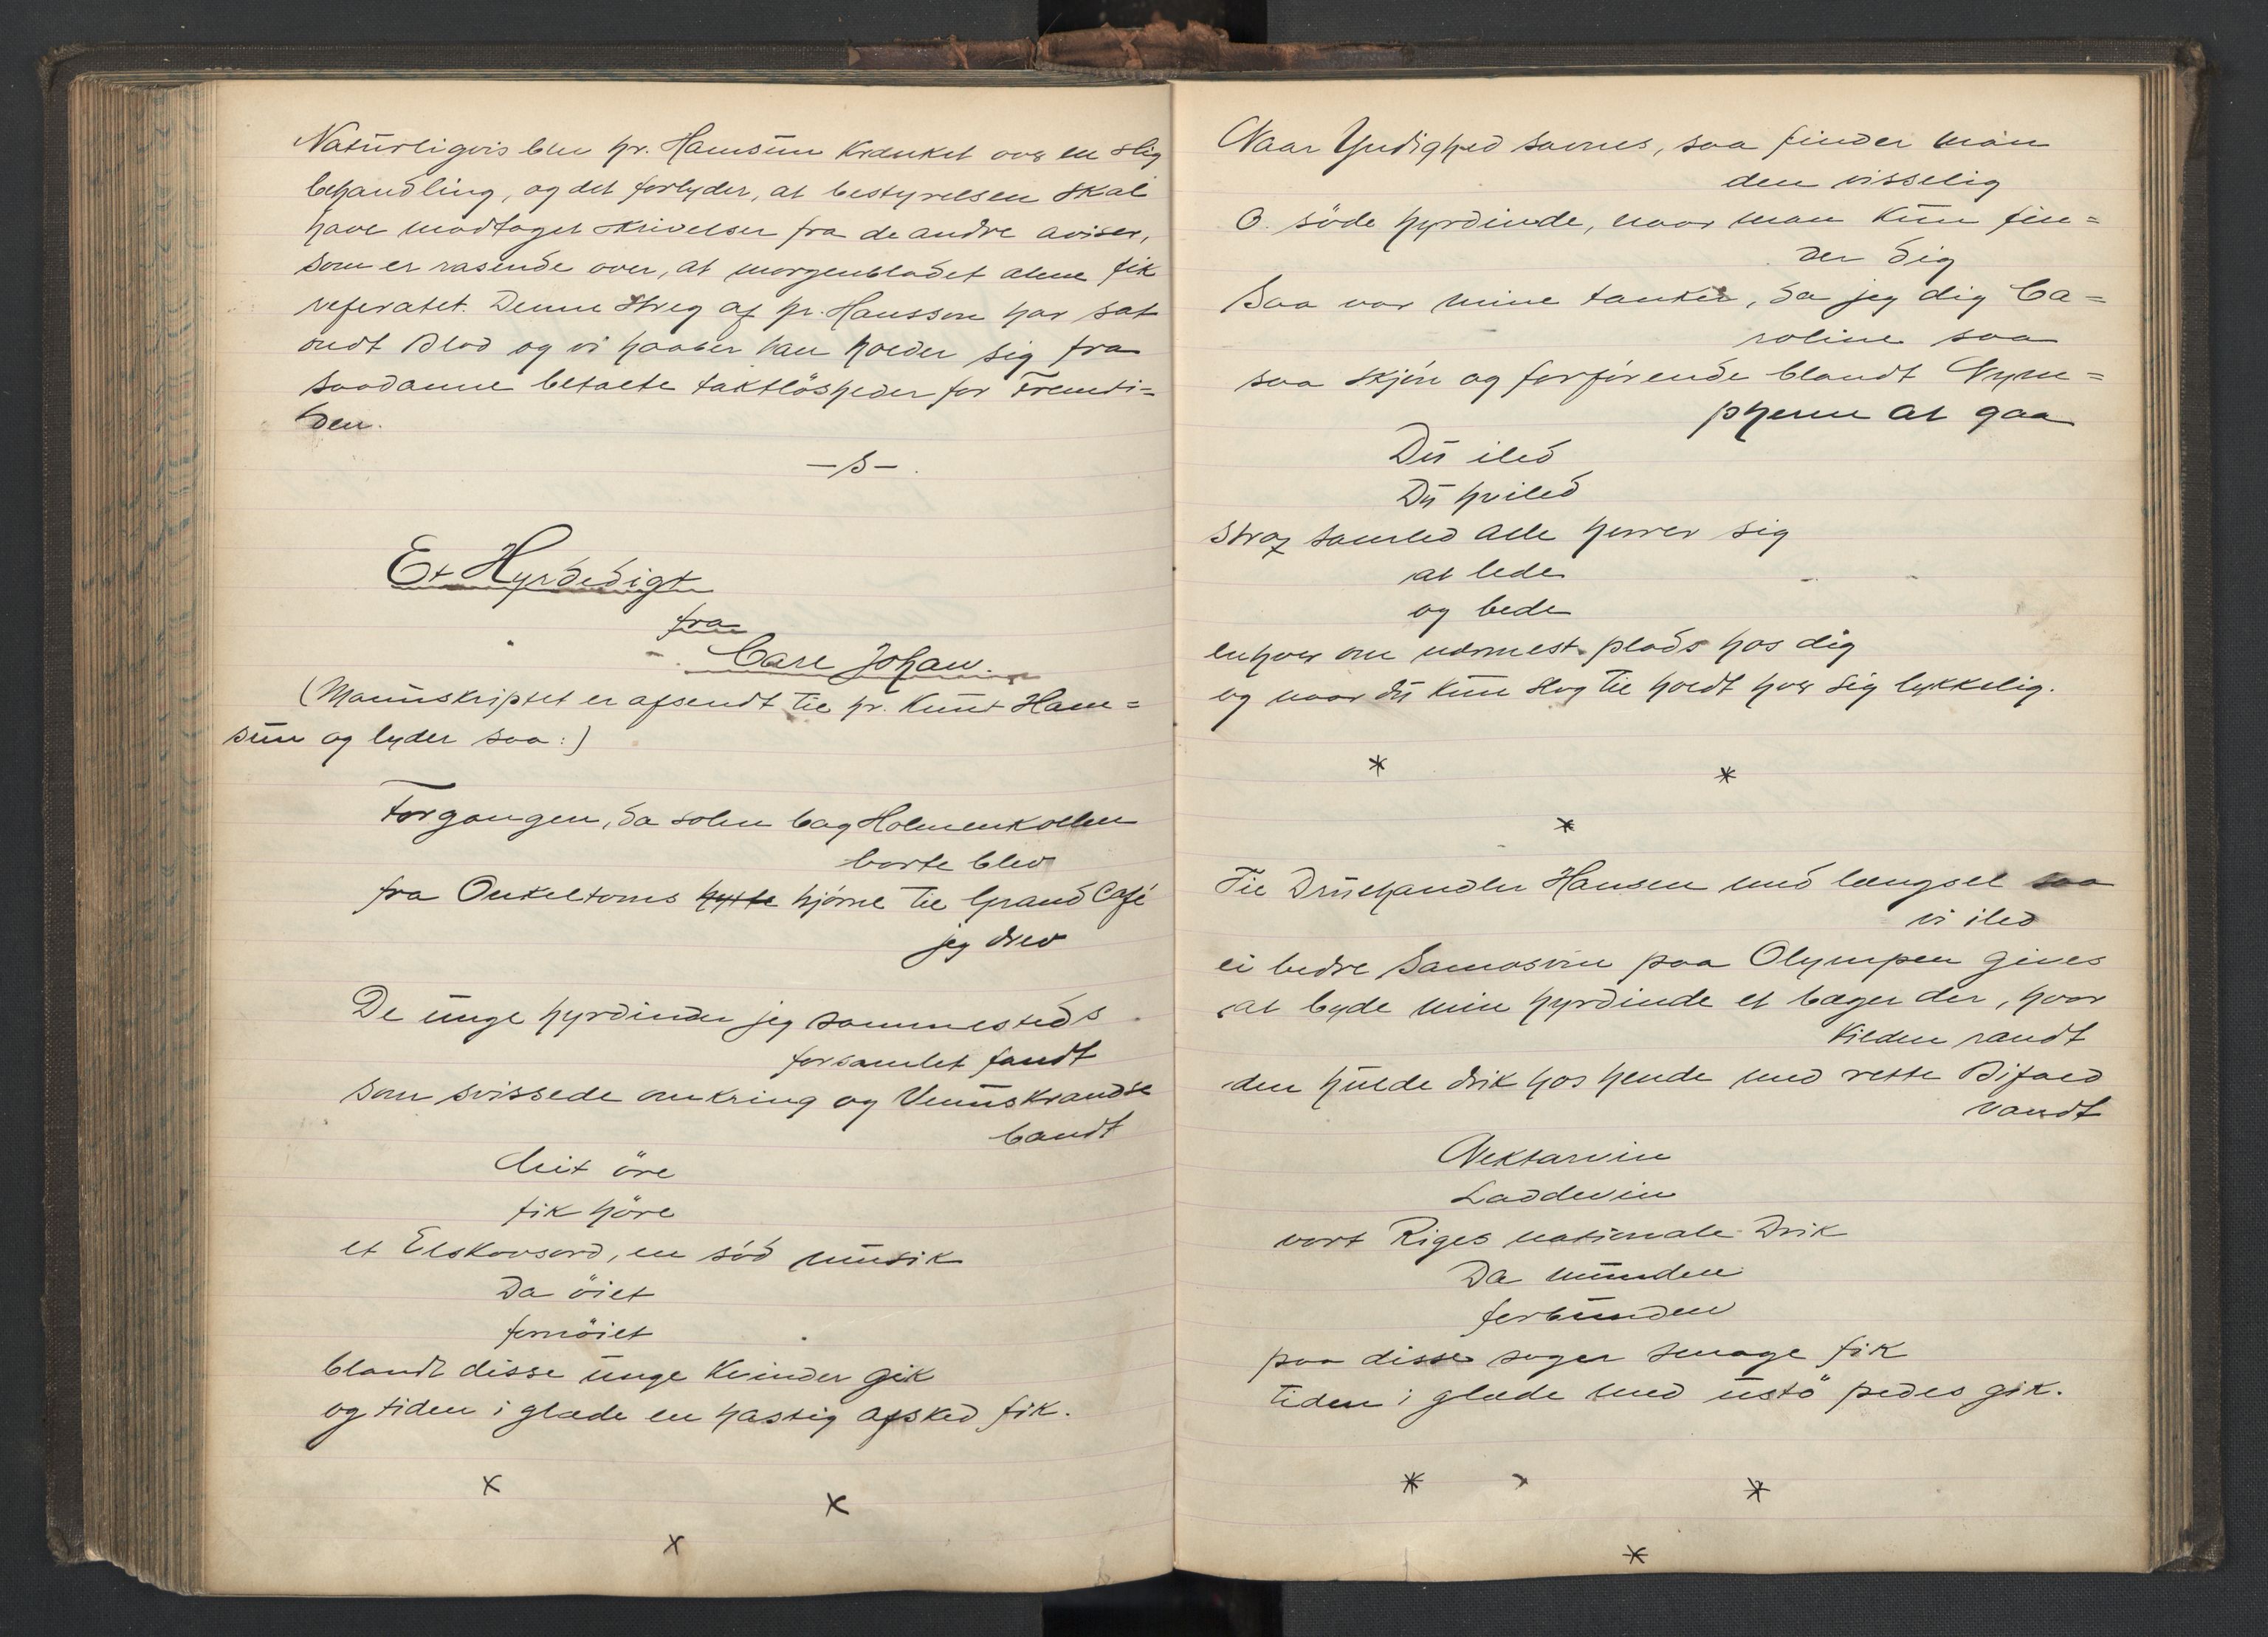 Naturligvis blev hr. Hamsun krænket over en slig
behandling, og det forlyder, at bestyrelsen skal
have modtaget skrivelser fra de andre aviser,
som er rasende over, at morgenbladet alene fik
referatet. Denne Streg af hr. Hansson har sat
ondt blod og vi haaber han holder sig fra
saadanne betalte taktlösheder for Fremti=
den.
—s—.
Et Hyrdedigt
fra
Carl Johan.
(Manuskriptet er afsendt til hr. Knut Ham=
sun og lyder saa:)
Forgangen, da solen bag Holmenkollen
borte blev
fra Onkeltoms hytte hjörne til Grand Café
jeg drev
De unge hyrdinder jeg sammesteds
forsamlet fandt
som svissede omkring og Venuskrandse
bandt
Mit öre
fik höre
et Elskovsord, en söd musik
Da öiet
fornöiet
blandt disse unge Kvinder gik
og tiden i glæde en hastig afsked fik.
x
x
x
Naar Yndighed savnes, saa finder man
den visselig
O. söde hyrdinde, naar man kun fin=
der dig
Saa var mine tanker, da jeg dig Ca=
roline saa
saa skjön og forförende blandt Nym=
pherne at gaa
Du iled
Du hviled
Strax samled alle herrer sig
at lede
og bede
enhver om nærmest plads hos dig
og naar du kun slog til holdt hver sig lykkelig.
*
*
*
Til Druehandler Hansen med længsel saa
vi iled
ei bedre Samosvin paa Olympen gives
at byde min hyrdinde et bæger der, hvor
kilden randt
den hulde drik hos hende med rette Bifald
vandt
Nektarvin
Laddevin
vort Riges nationale Drik
Da munden
forbunden
paa disse sager smage fik
tiden i glæde med ustö pedes gik.
*
*
*